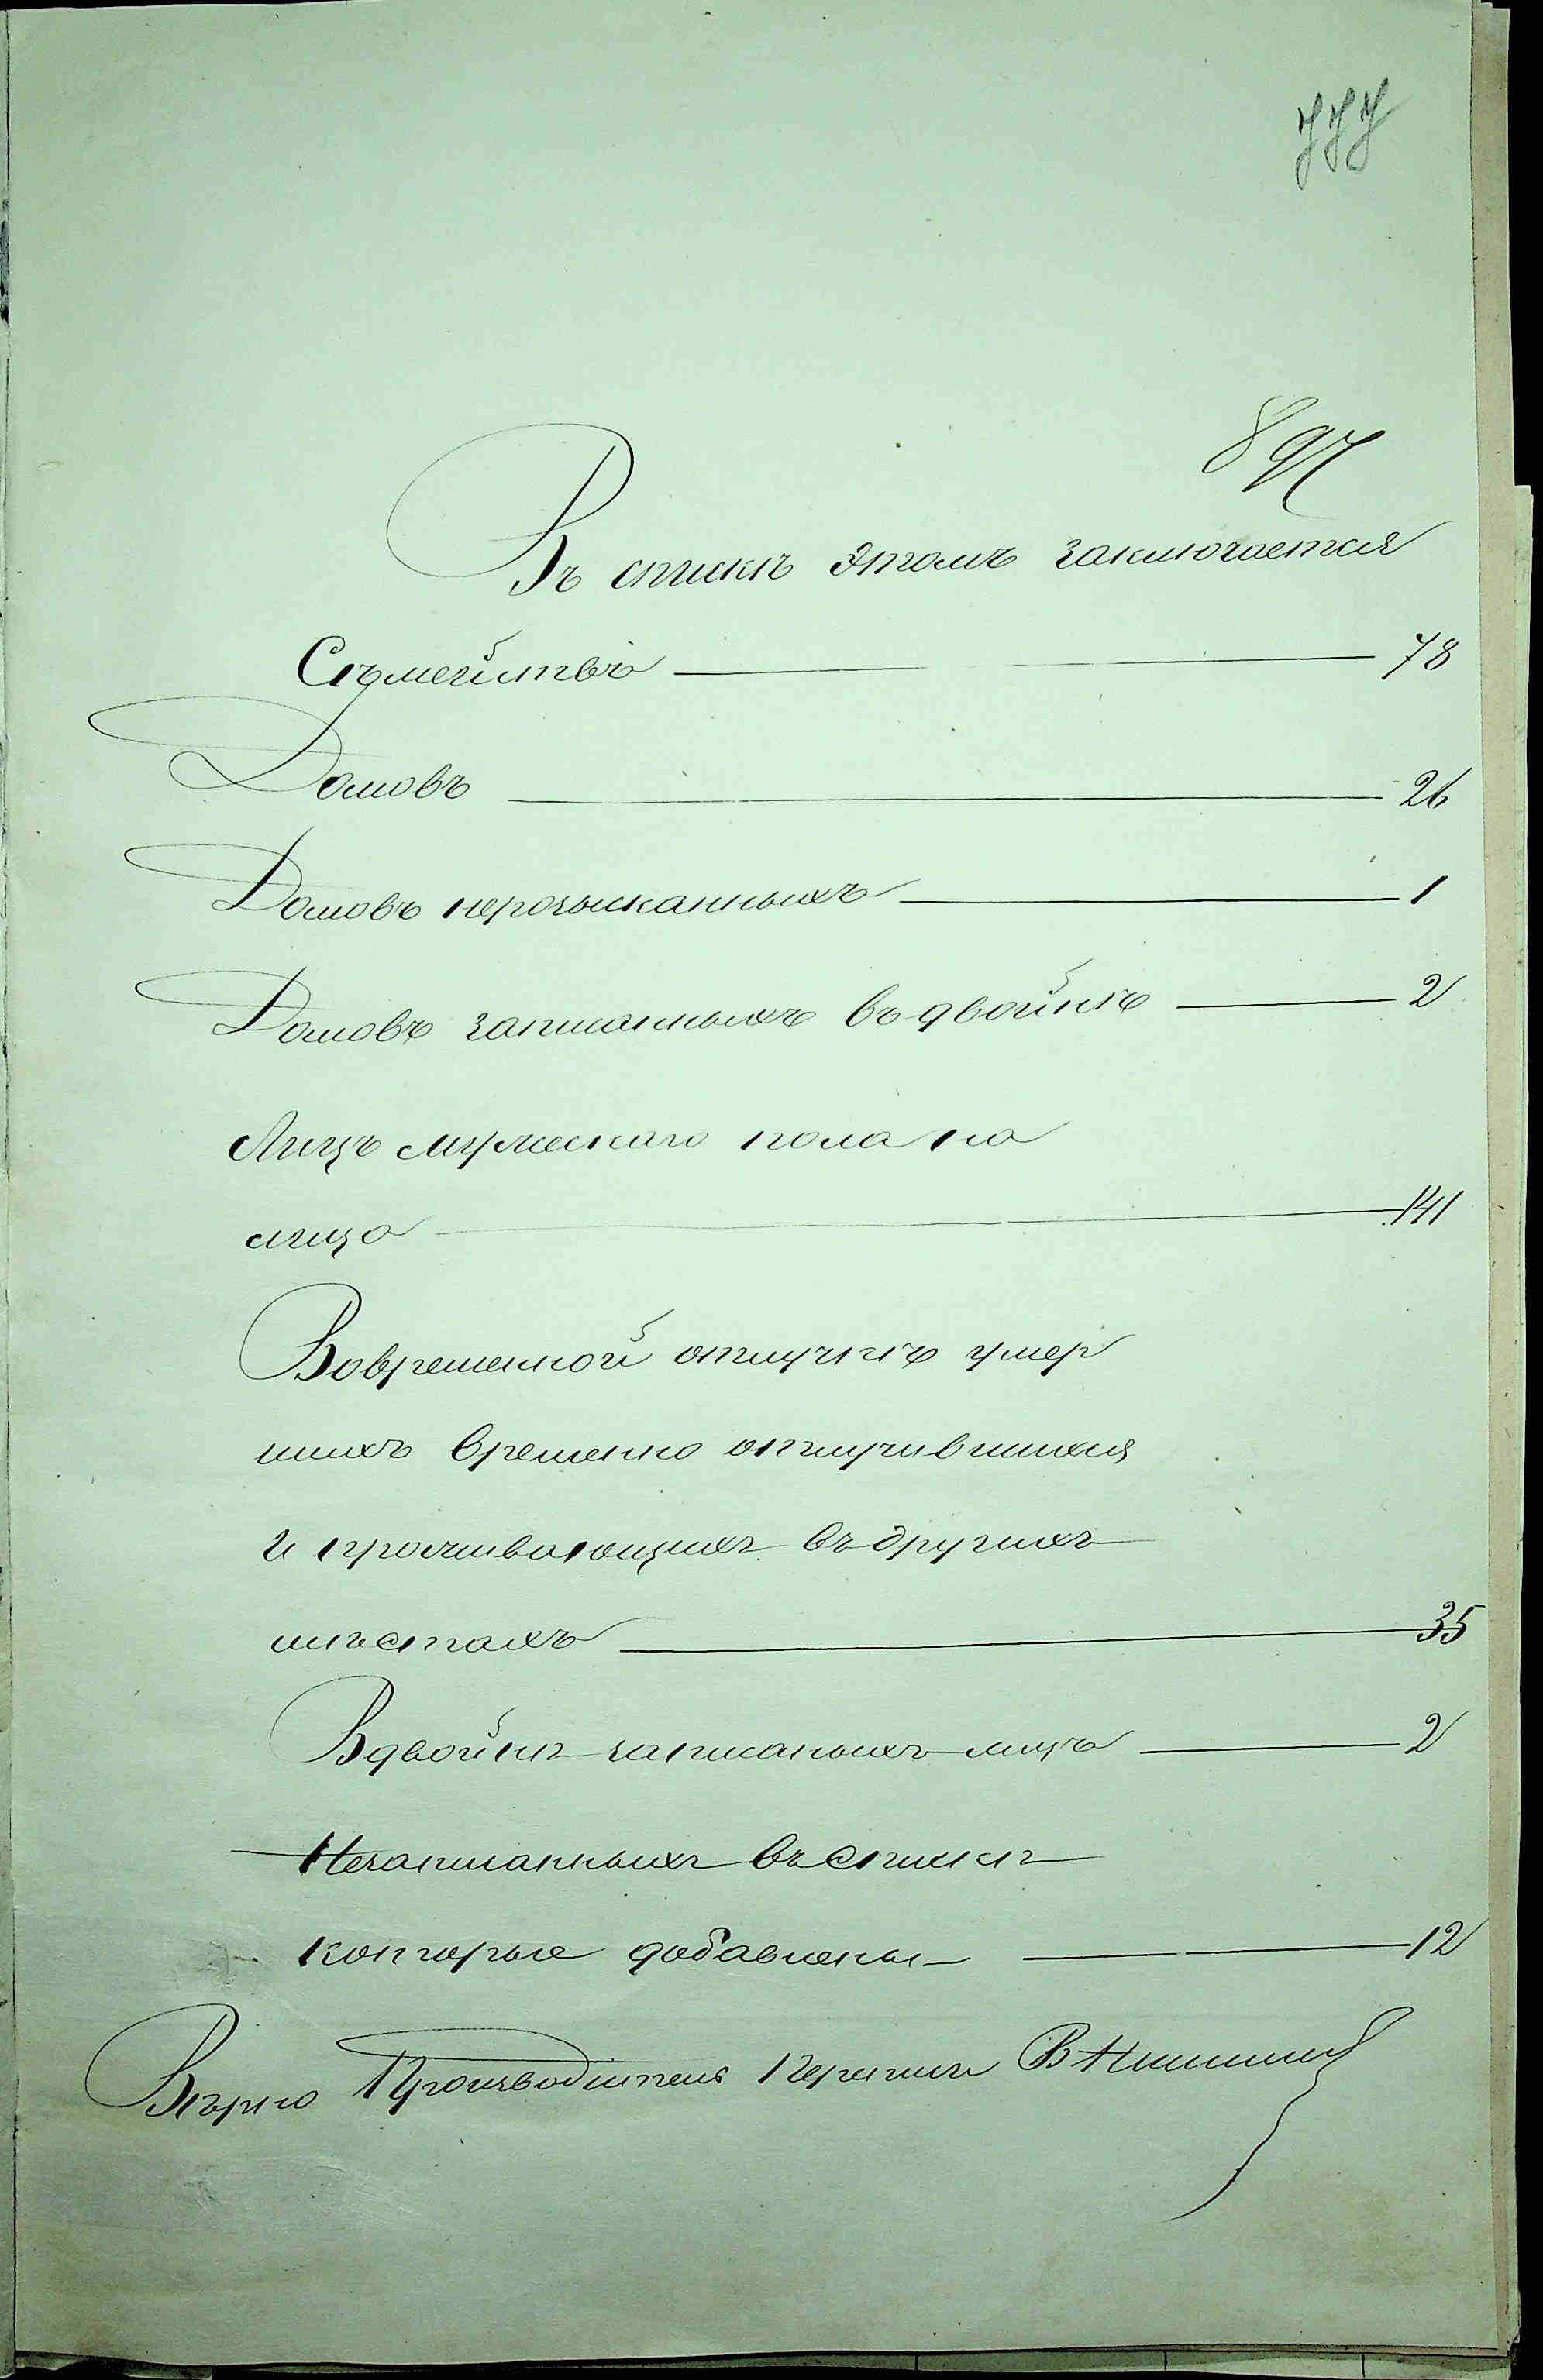 777
897
Въ спискѣ этомъ заключается
Съмействъ 78
Домовъ 26
Домовъ нерозысканныхъ 1
Домовъ записанныхъ въ двойнѣ 2
Лицъ мужескаго пола на
лицо 141
Вовременной отлучкѣ умер
шихъ временно отлучившихся
и проживающихъ въ другихъ
мѣстахъ 35
Вдвойнѣ записаныхъ лицъ 2
Незаписанныхъ въ списки
которые добавлены 12
Вѣрно Производитель Переписи